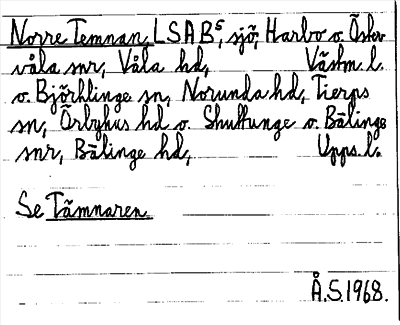 Norre Temnan, LSAB⁵, sjö, Harbo o. Öster
våla snr, Våla hd, Västm. l.
o. Björklinge sn, Norunda hd, Tierps
sn, Örbyhus hd o. Skuttunge o. Bälinge
snr, Bälinge hd, Upps. l.
Se Tämnaren
Å.S. 1968.